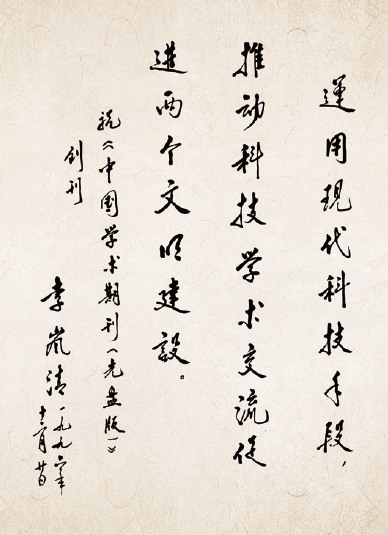 運用現代科技手段，
推动科技学术交流促
進两个文明建設。
祝《中国学术期刊（光盘版）》
创刊
李嵐清
一九九六年
十二月廿日